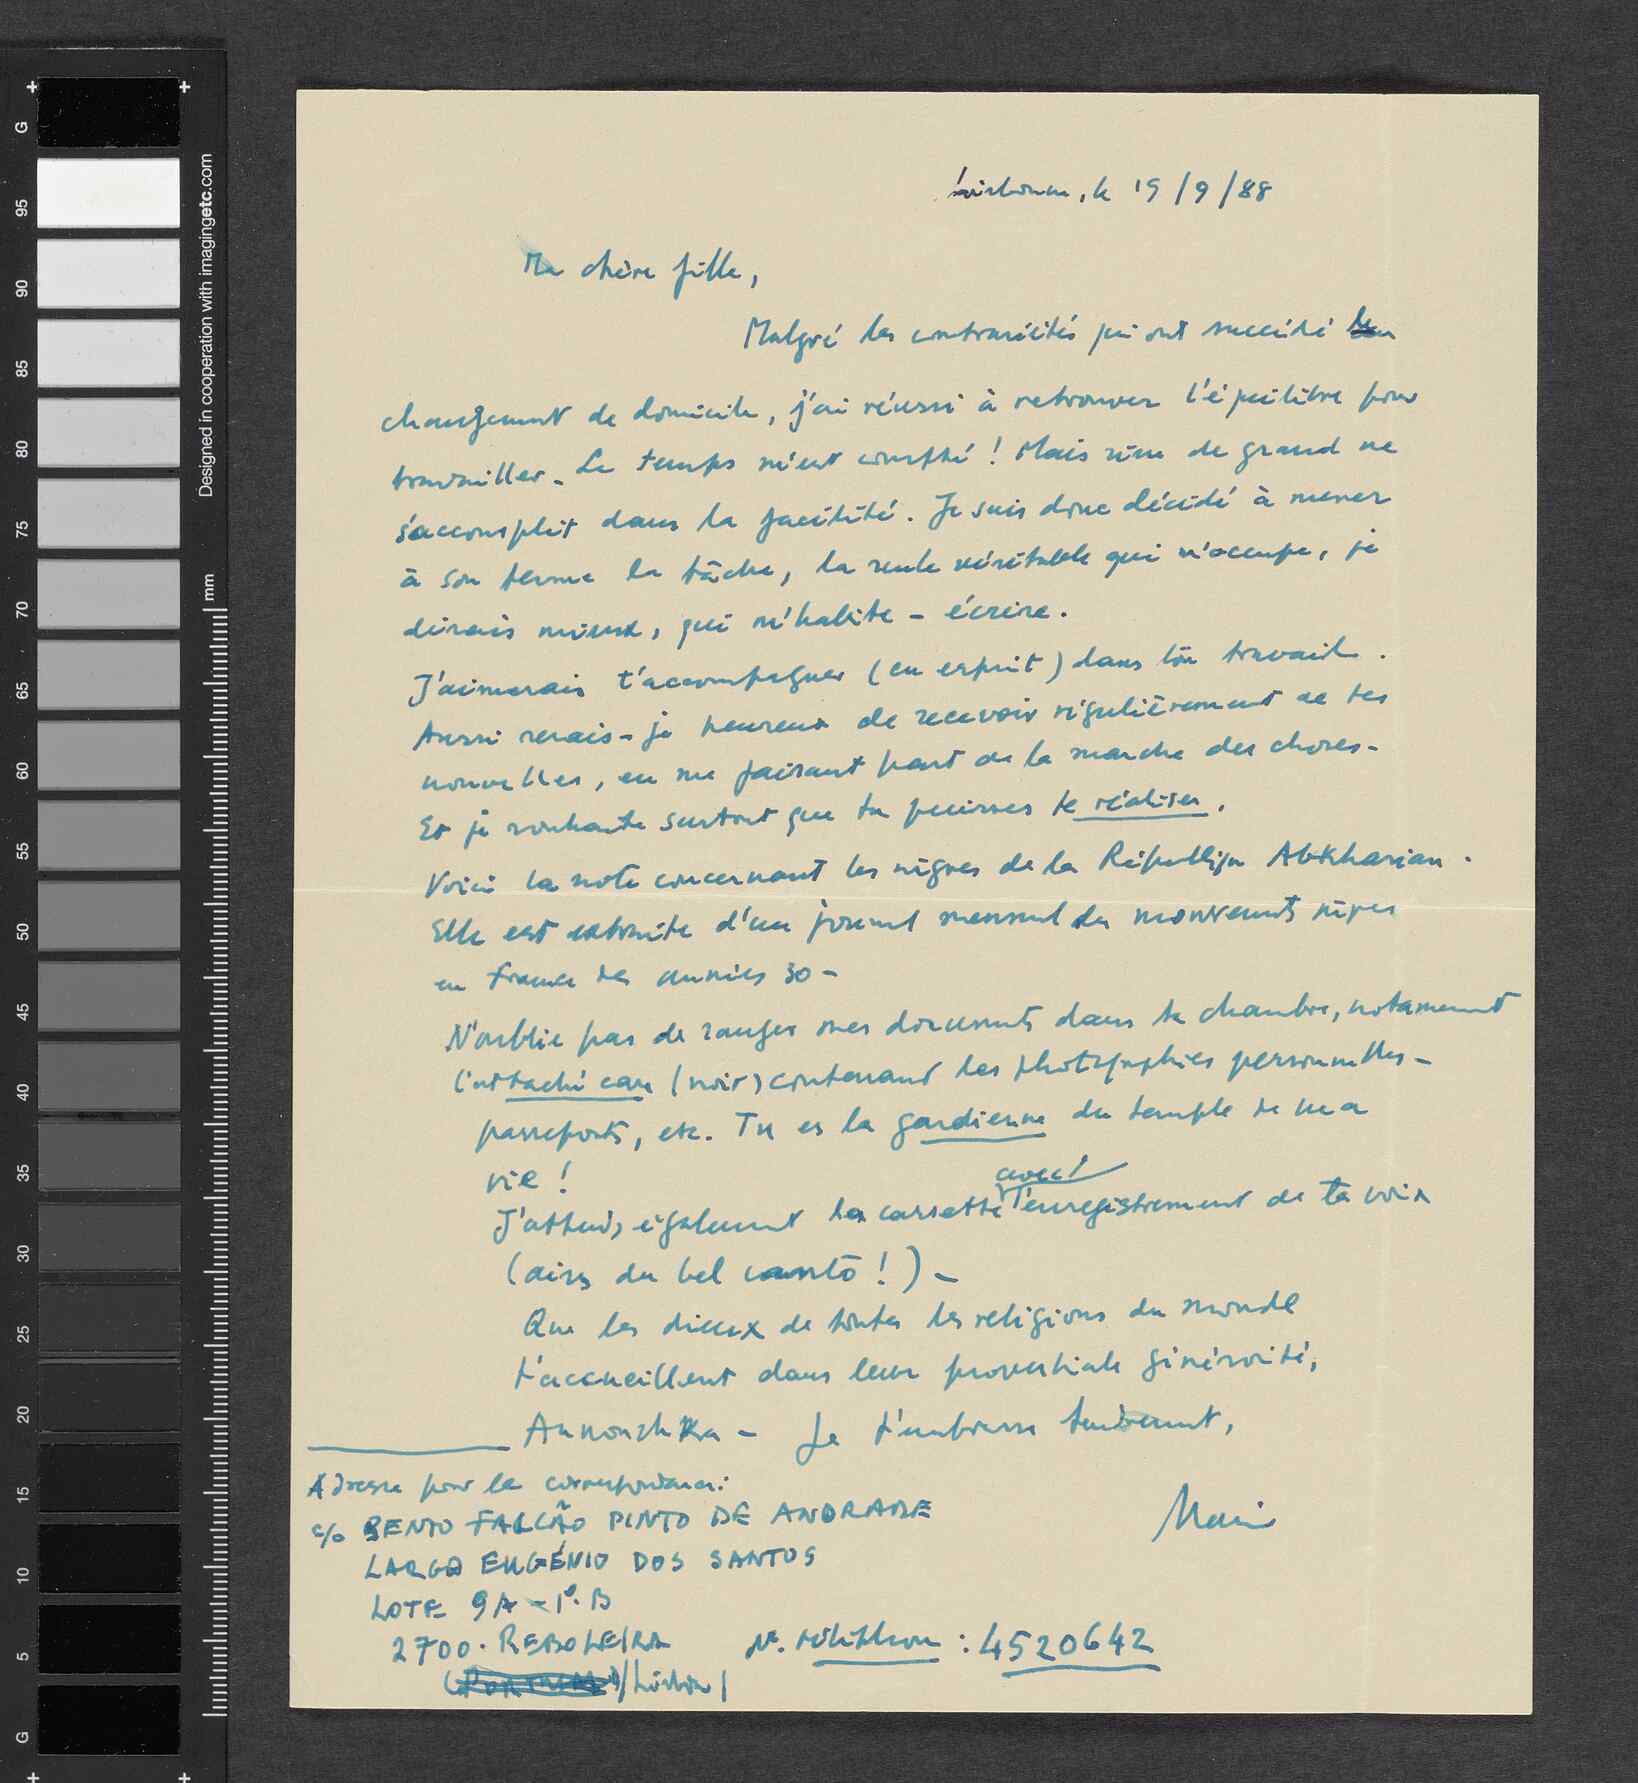 Lisbonne, le 19/9/88
Ma chère fille,
Malgré les contrariétés qui ont succédé
changement de domicile, j'ai réussi à retrouver l'équilibre pour
travailler. Le temps m'est compté ! Mais rien de grand ne
s'accomplit dans la facilité. Je suis donc décidé à mener
à son terme la tâche, la seule véritable qui m'occupe, je
dirais mieux, qui m'habite - écrire.
J'aimerais t'accompagner (en esprit) dans ton travail.
Aussi serais-je heureux de recevoir régulièrement de tes
nouvelles, en me faisant part de la marche des choses -
Et je souhaite surtout que tu puisses te réaliser.
Voici la note concernant les nègres de la République Abkhasian.
Elle est extraite d'un journal mensuel des mouvements nègres
en France des années 30 -
N'oublie pas de ranger mes documents dans ta chambre, notamment
l'attaché case (noir) contenant les photographies personnelles -
passeports, etc. Tu es la gardienne du temple de ma
vie !
avec
J'attends également la cassette l'enregistrement de ta voix
(airs du bel canto !) -
Que les dieux de toutes les religions du monde
t'accueillent dans leur proverbiale générosité,
Annouchka - Je t'embrasse tendrement,
Adresse pour la correspondance:
c/o BENTO FALCÃO PINTO DE ANDRADE
LARGO EUGÉNIO DOS SANTOS
LOTE 9A - 1º. B
2700 - REBOLEIRA
(Portugal) /Lisbonne/
Nº. téléphone : 4520642
Mario
G
95
90
85
80
75
70
65
60
55
50
45
40
35
30
25
20
15
10
5
G
Designed in cooperation with imagingetc.com
mm